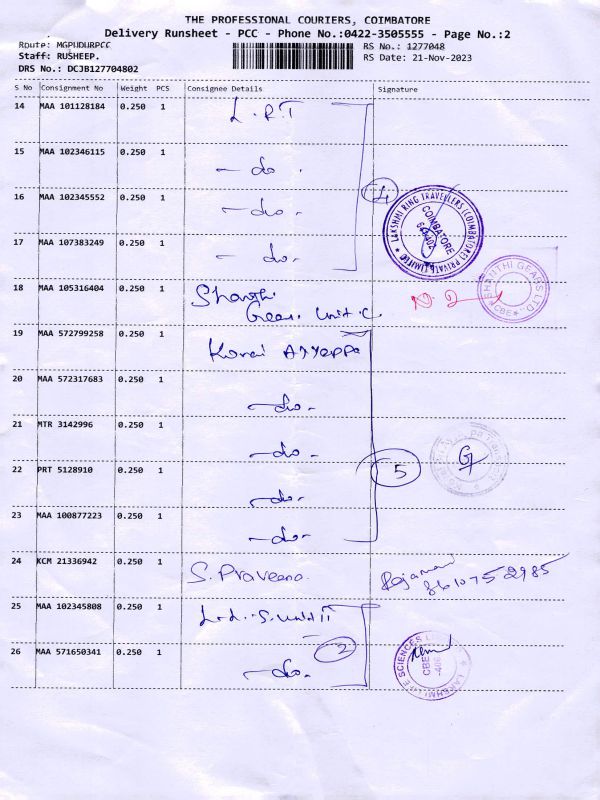 THE PROFESSIONAL COURIERS, COIMBATORE
Delivery Runsheet - PCC - Phone No.:0422-3505555 - Page No.:2
Route: MGPUDURPCC
Staff: RUSHEEP.
DRS No.: DCJB127704802
RS No.: 1277048
RS Date: 21-Nov-2023
S No Consignment No Weight PCS Consignee Details Signature
14 MAA 101128184 0.250 1 L.R.T
15 MAA 102346115 0.250 1 - do -
16 MAA 102345552 0.250 1 - do -
4
LAKSHMI RING TRAVELLERS (COIMBATORE) PRIVATE LIMITED
COIMBATORE
17 MAA 107383249 0.250 1 - do -
18 MAA 105316404 0.250 1 Shanthi
Gears. Unit C
SHANTHI GEARS LTD.
CBE
19 MAA 572799258 0.250 1 Konai Ayyappa
20 MAA 572317683 0.250 1 - do -
21 MTR 3142996 0.250 1 - do -
22 PRT 5128910 0.250 1 - do -
5
23 MAA 100877223 0.250 1 - do -
24 KCM 21336942 0.250 1 S. Praveena
8610752985
25 MAA 102345808 0.250 1
2
26 MAA 571650341 0.250 1 - do -
LAKSHMI LIFE SCIENCES
CBE